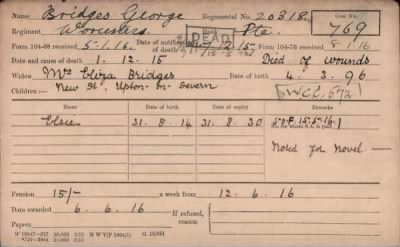 Name Bridges George Regimental No. 20318 Case No.
Regiment Worcesters. Pte. 769
Form 104-88 received 5.1.16 Date of notification Form 104-76 received 8-1-16
DEAD
Date and cause of death 1. 12. 15 Died of wounds
Widow Mrs Eliza Bridges Date of birth 4. 3. 96
Children:— New St, Upton-on-Severn [W.C.C. 572.]
Name Date of birth Date of expiry Remarks
Elsie 31. 8. 14 31. 8. 30
Noted for Novel
Pension 15/- a week from 12. 6. 16
Date awarded 6. 6. 16 If refused, reason
Papers